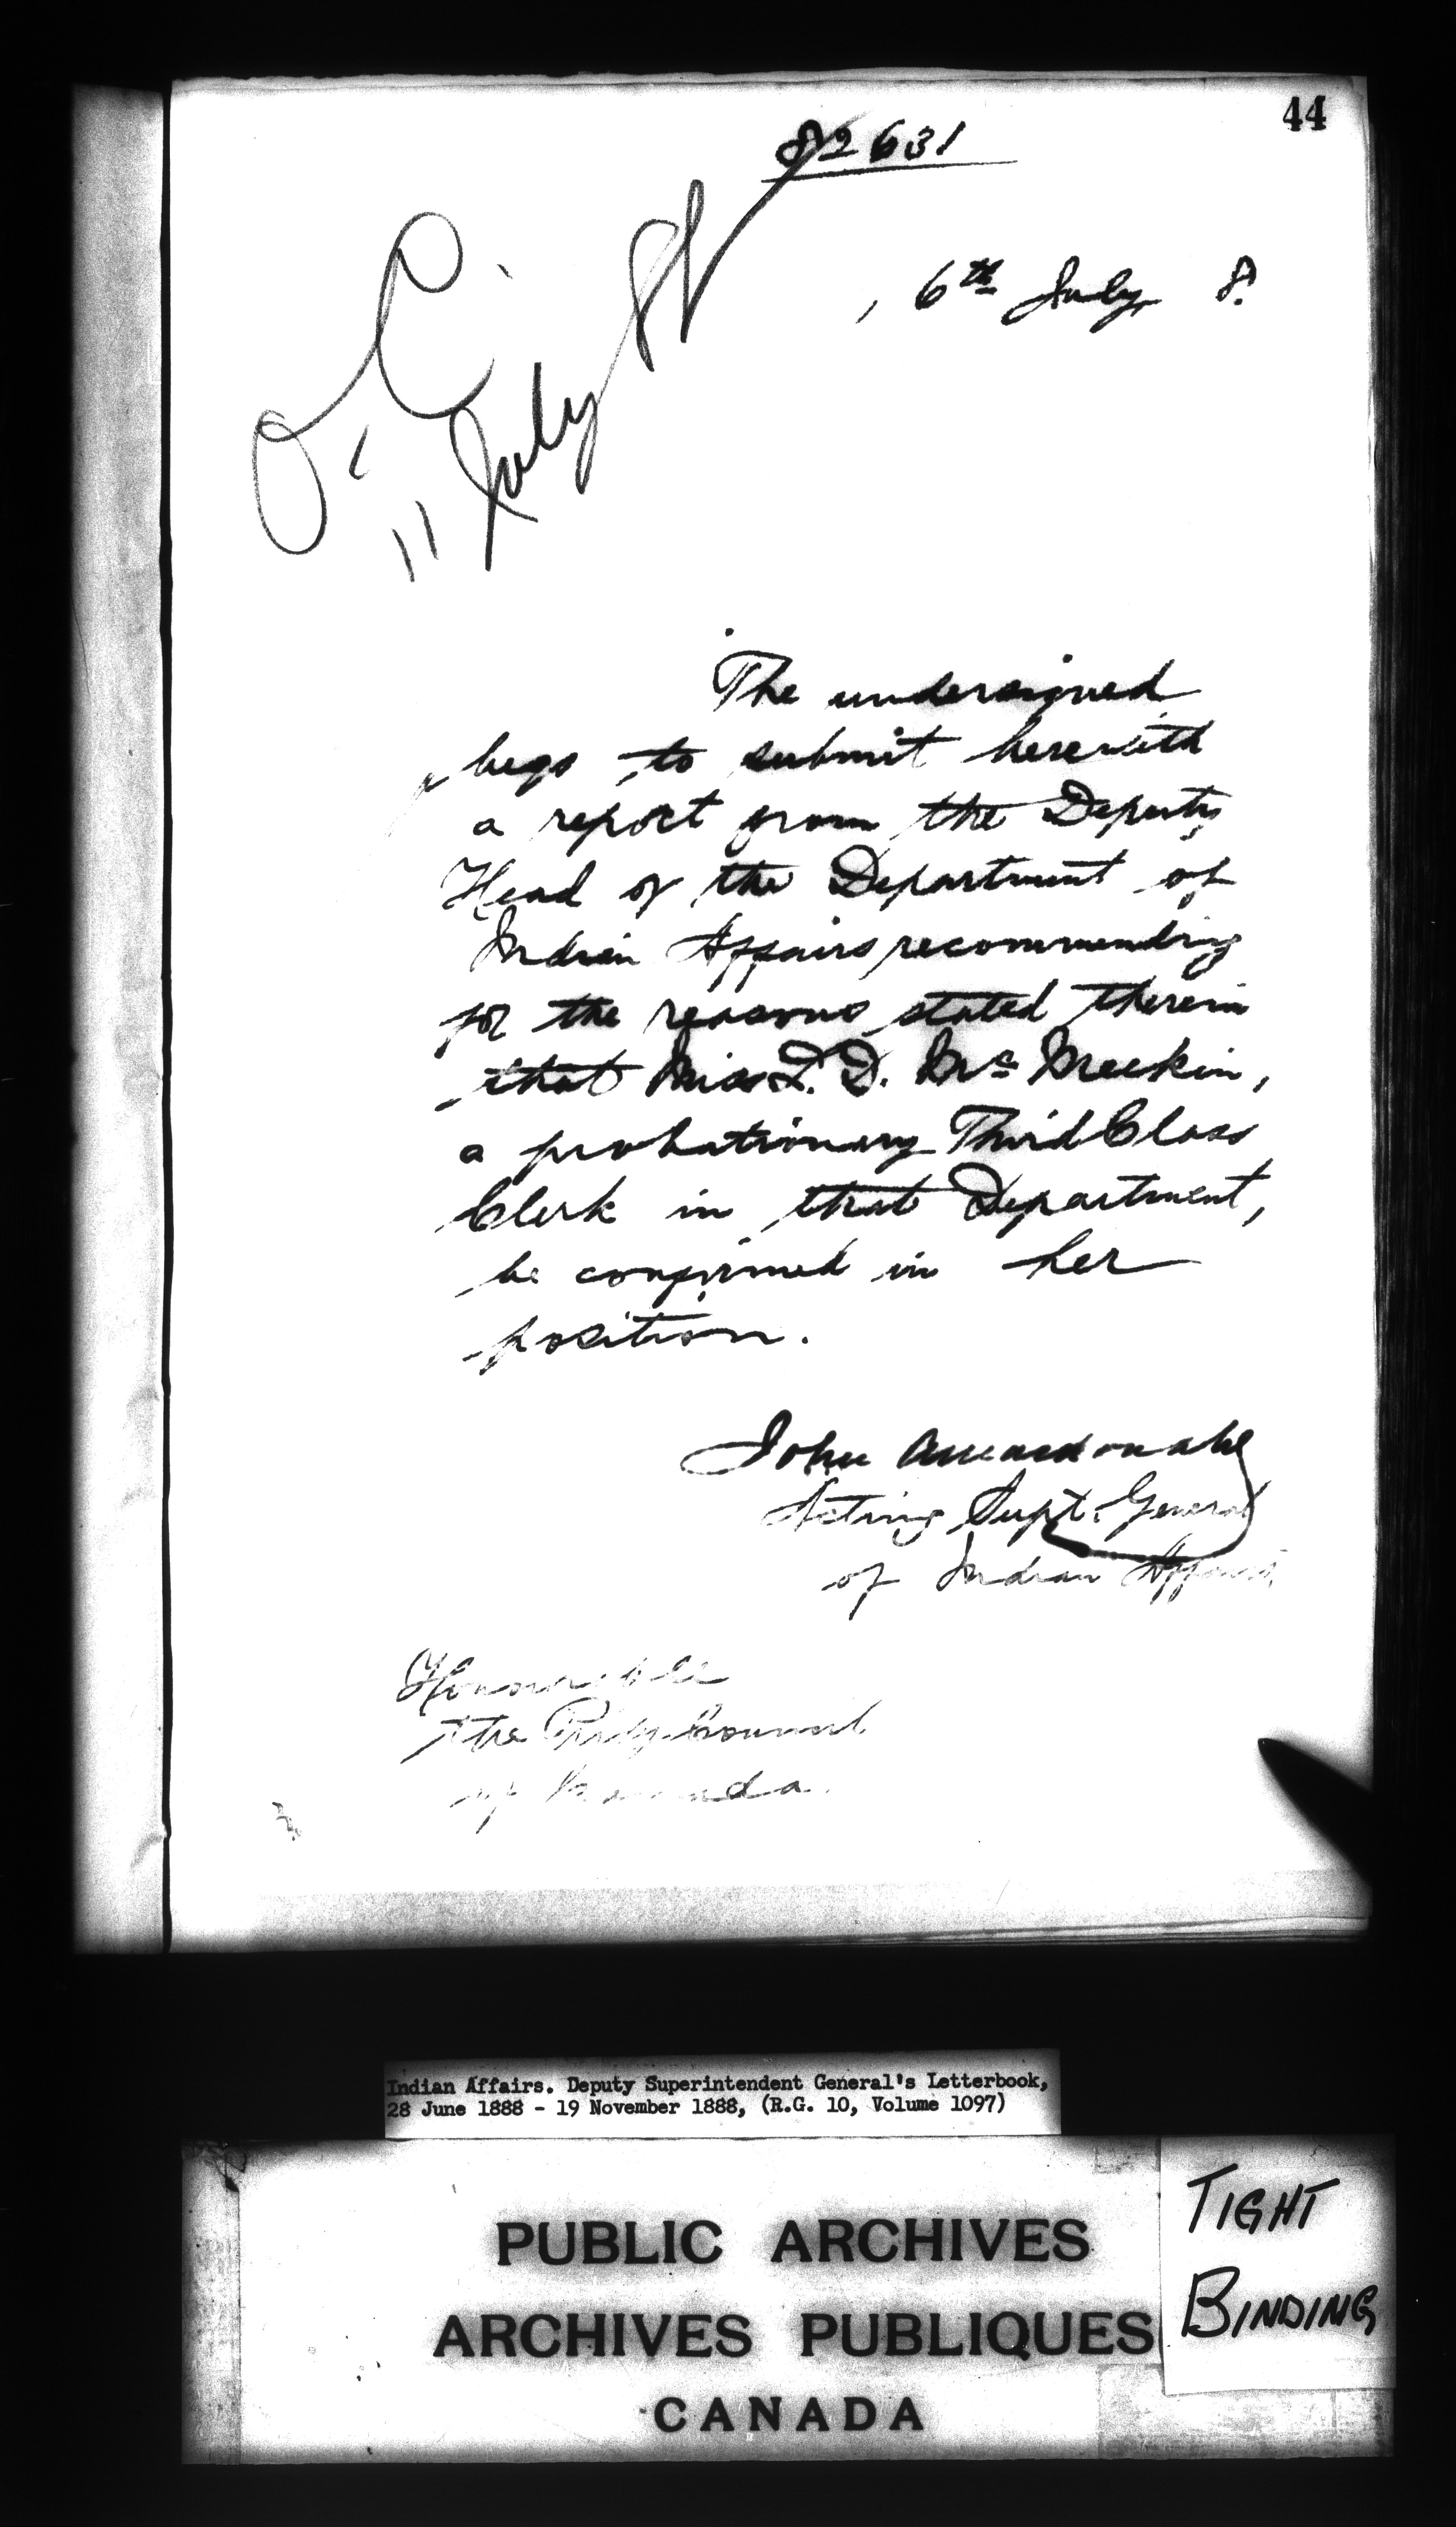 44
82631
O.C.
11 July 88
, 6th July, 8.
The undersigned
begs to submit herewith
a report from the Deputy
Head of the Department of
Indian Affairs recommending
for the reasons stated therein
that Miss I. D. Mc Meekin,
a probationary Third Class
Clerk in that Department,
be confirmed in her
position.
John A Macdonald
Acting Supt. General
of Indian Affairs.
Honourable
The Privy Council
of Canada.
Indian Affairs. Deputy Superintendent General's Letterbook,
28 June 1888 - 19 November 1888, (R.G. 10, Volume 1097)
TIGHT
BINDING
PUBLIC ARCHIVES
ARCHIVES PUBLIQUES
CANADA